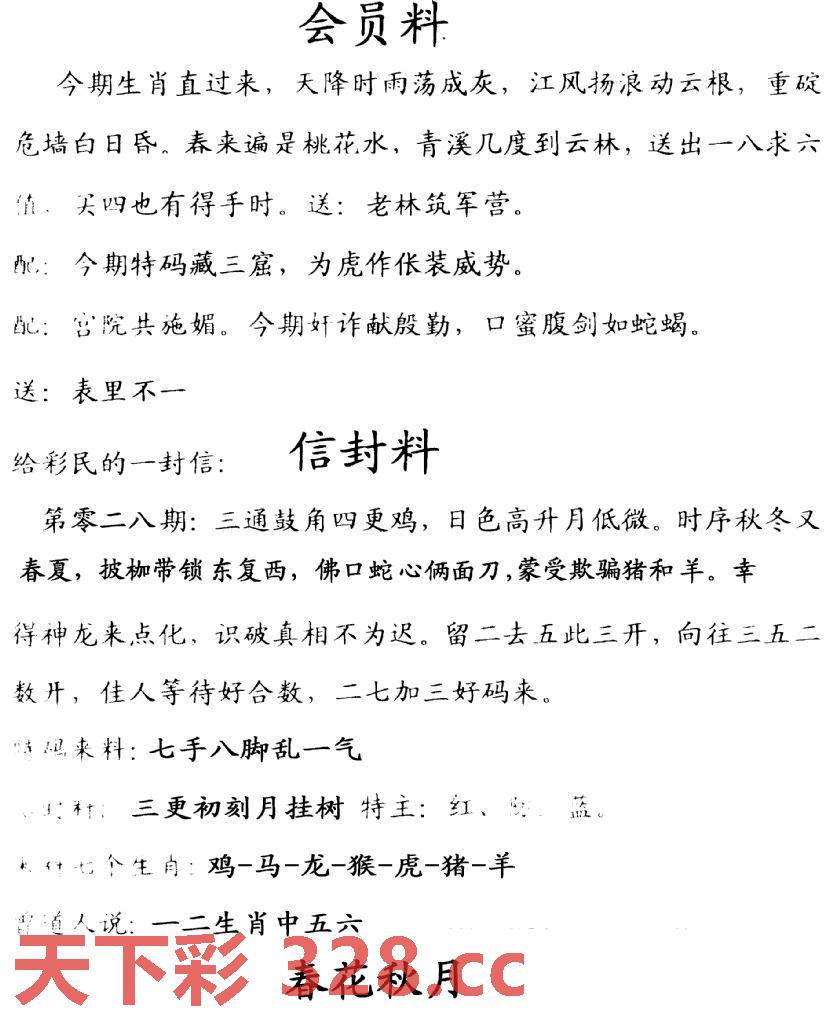 会员料
今期生肖直过来，天降时雨荡成灰，江风扬浪动云根，重碇
危墙白日昏。春来遍是桃花水，青溪几度到云林，送出一八求六
值，买四也有得手时。送：老林筑军营。
配：今期特码藏三窟，为虎作伥装威势。
配：宫院共施媚。今期奸诈献殷勤，口蜜腹剑如蛇蝎。
送：表里不一
信封料
给彩民的一封信：
第零二八期：三通鼓角四更鸡，日色高升月低微。时序秋冬又
春夏，披枷带锁东复西，佛口蛇心俩面刀,蒙受欺骗猪和羊。幸
得神龙来点化，识破真相不为迟。留二去五此三开，向往三五二
数开，佳人等待好合数，二七加三好码来。
特码来料：七手八脚乱一气
三更初刻月挂树 特主：红、蓝。
七个生肖：鸡-马-龙-猴-虎-猪-羊
曾道人说：一二生肖中五六
天下彩 328.cc
春花秋月